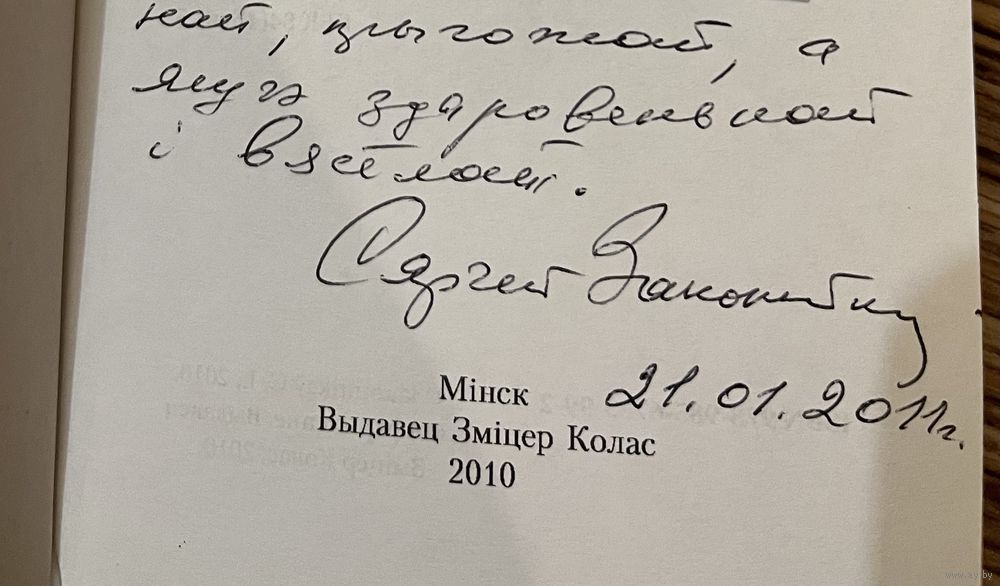 най, прыгожай, а
яшчэ здаровенькай
і вясёлай.
Сяргей Законнікаў
21.01.2011г.
Мінск
Выдавец Зміцер Колас
2010
www.ay.by